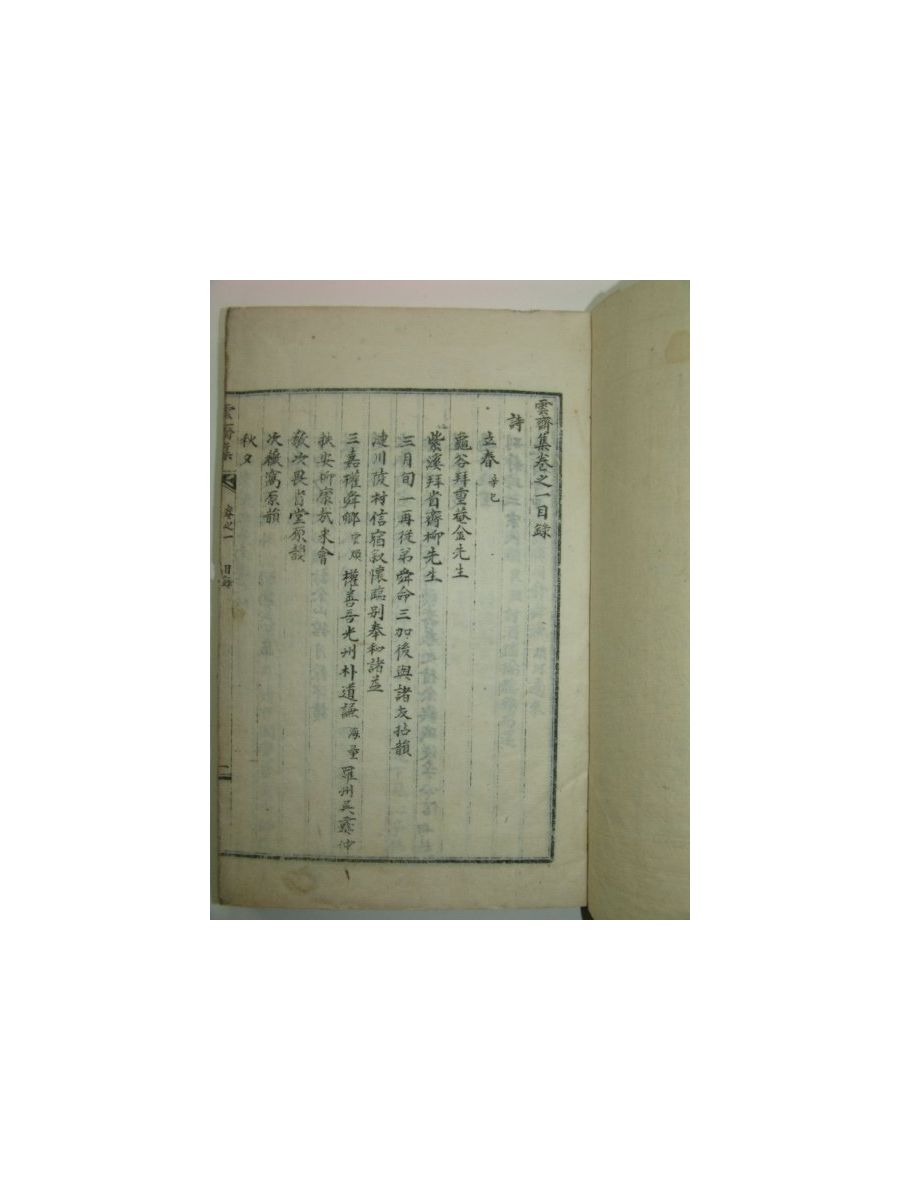 雲齋集卷之一目錄
詩
立春 辛巳
龜谷拜重菴金先生
紫溪拜省齋柳先生
三月旬一再從弟舜命三加後與諸友拈韻
漣川陵村信宿叙懷臨别奉和諸益
三嘉權舜鄉 權善吾光州朴道謙 海量 羅州吳 仲
扶安柳 來會
敬次畏齋堂原韻
次 窩原韻
秋夕
雲齋集 卷之一 目錄 一